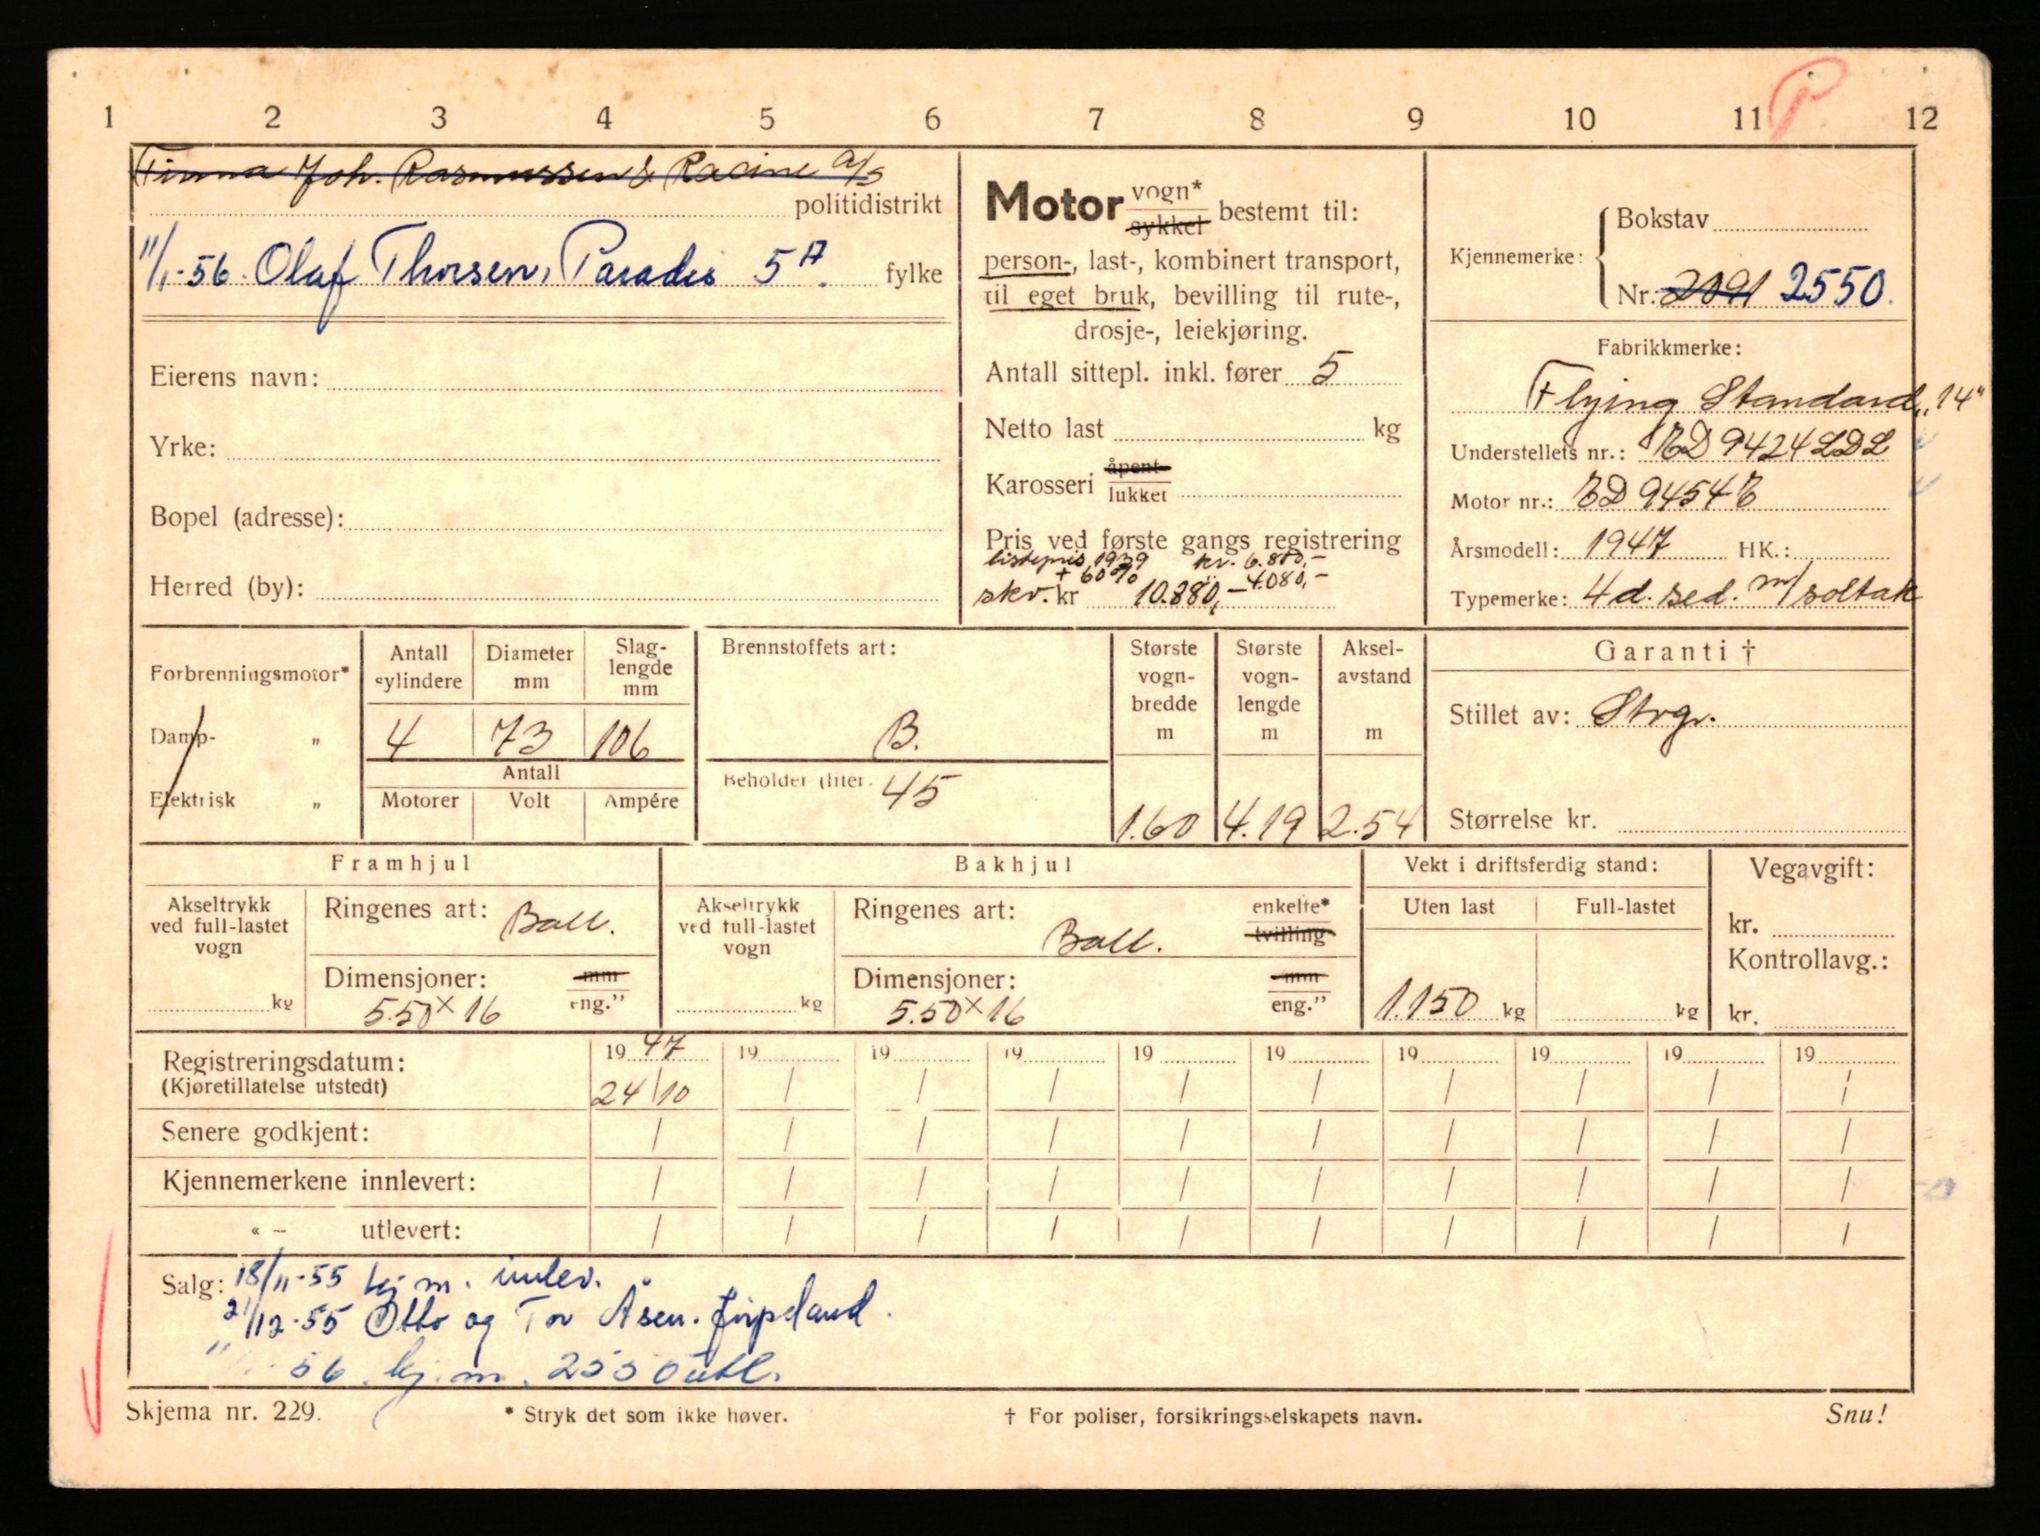 1 2 3 4 5 6 7 8 9 10 11 12
P.
Firma Joh. Rasmussen & Racine a/s
politidistrikt
11/1-56. Olaf Thorsen, Paradis 5 A.
fylke
Eierens navn:
Yrke:
Bopel (adresse):
Herred (by):
Motor vogn* sykkel bestemt til:
person-, last-, kombinert transport,
til eget bruk, bevilling til rute-,
drosje-, leiekjøring.
Antall sittepl. inkl. fører 5
Netto last kg
Karosseri åpent lukket
Pris ved første gangs registrering
listepris 1939 kr. 6.800,-
+ 60% 4.080,-
skv. kr 10.880,-
Kjennemerke: Bokstav
Nr. 2091 2550.
Fabrikkmerke:
Flying Standard „14"
Understellets nr.: ED 9424 LDL
Motor nr.: ED 9454 E
Årsmodell: 1947 HK.:
Typemerke: 4 d. sed. m/soltak
Forbrenningsmotor*
Damp- „
Elektrisk „
Antall cylindere
Diameter mm
Slag-lengde mm
4 73 106
Antall
Motorer Volt Ampére
Brennstoffets art:
B.
Beholder (liter. 45
Største vogn-bredde m
Største vogn-lengde m
Aksel-avstand m
1.60 4.19 2.54
Garanti †
Stillet av: Strgr.
Størrelse kr.
Framhjul
Akseltrykk ved full-lastet vogn
kg
Ringenes art: Ball.
Dimensjoner: mm
5.50 x 16 eng."
Bakhjul
Akseltrykk ved full-lastet vogn
kg
Ringenes art: enkelte*
Ball. tvilling
Dimensjoner: mm
5.50 x 16 eng."
Vekt i driftsferdig stand:
Uten last Full-lastet
1.150 kg kg
Vegavgift:
kr.
Kontrollavg.:
kr.
Registreringsdatum: 19 47 19 19 19 19 19 19 19 19 19
(Kjøretillatelse utstedt) 24/10 / / / / / / / / /
Senere godkjent: / / / / / / / / / /
Kjennemerkene innlevert: / / / / / / / / / /
« — utlevert: / / / / / / / / / /
Salg: 18/11-55 kj.m. innlev.
21/12-55 Otto og Tor Åsen. Jørpeland.
56. kj.m. 2550 utl.
Skjema nr. 229.
* Stryk det som ikke høver.
† For poliser, forsikringsselskapets navn.
Snu!